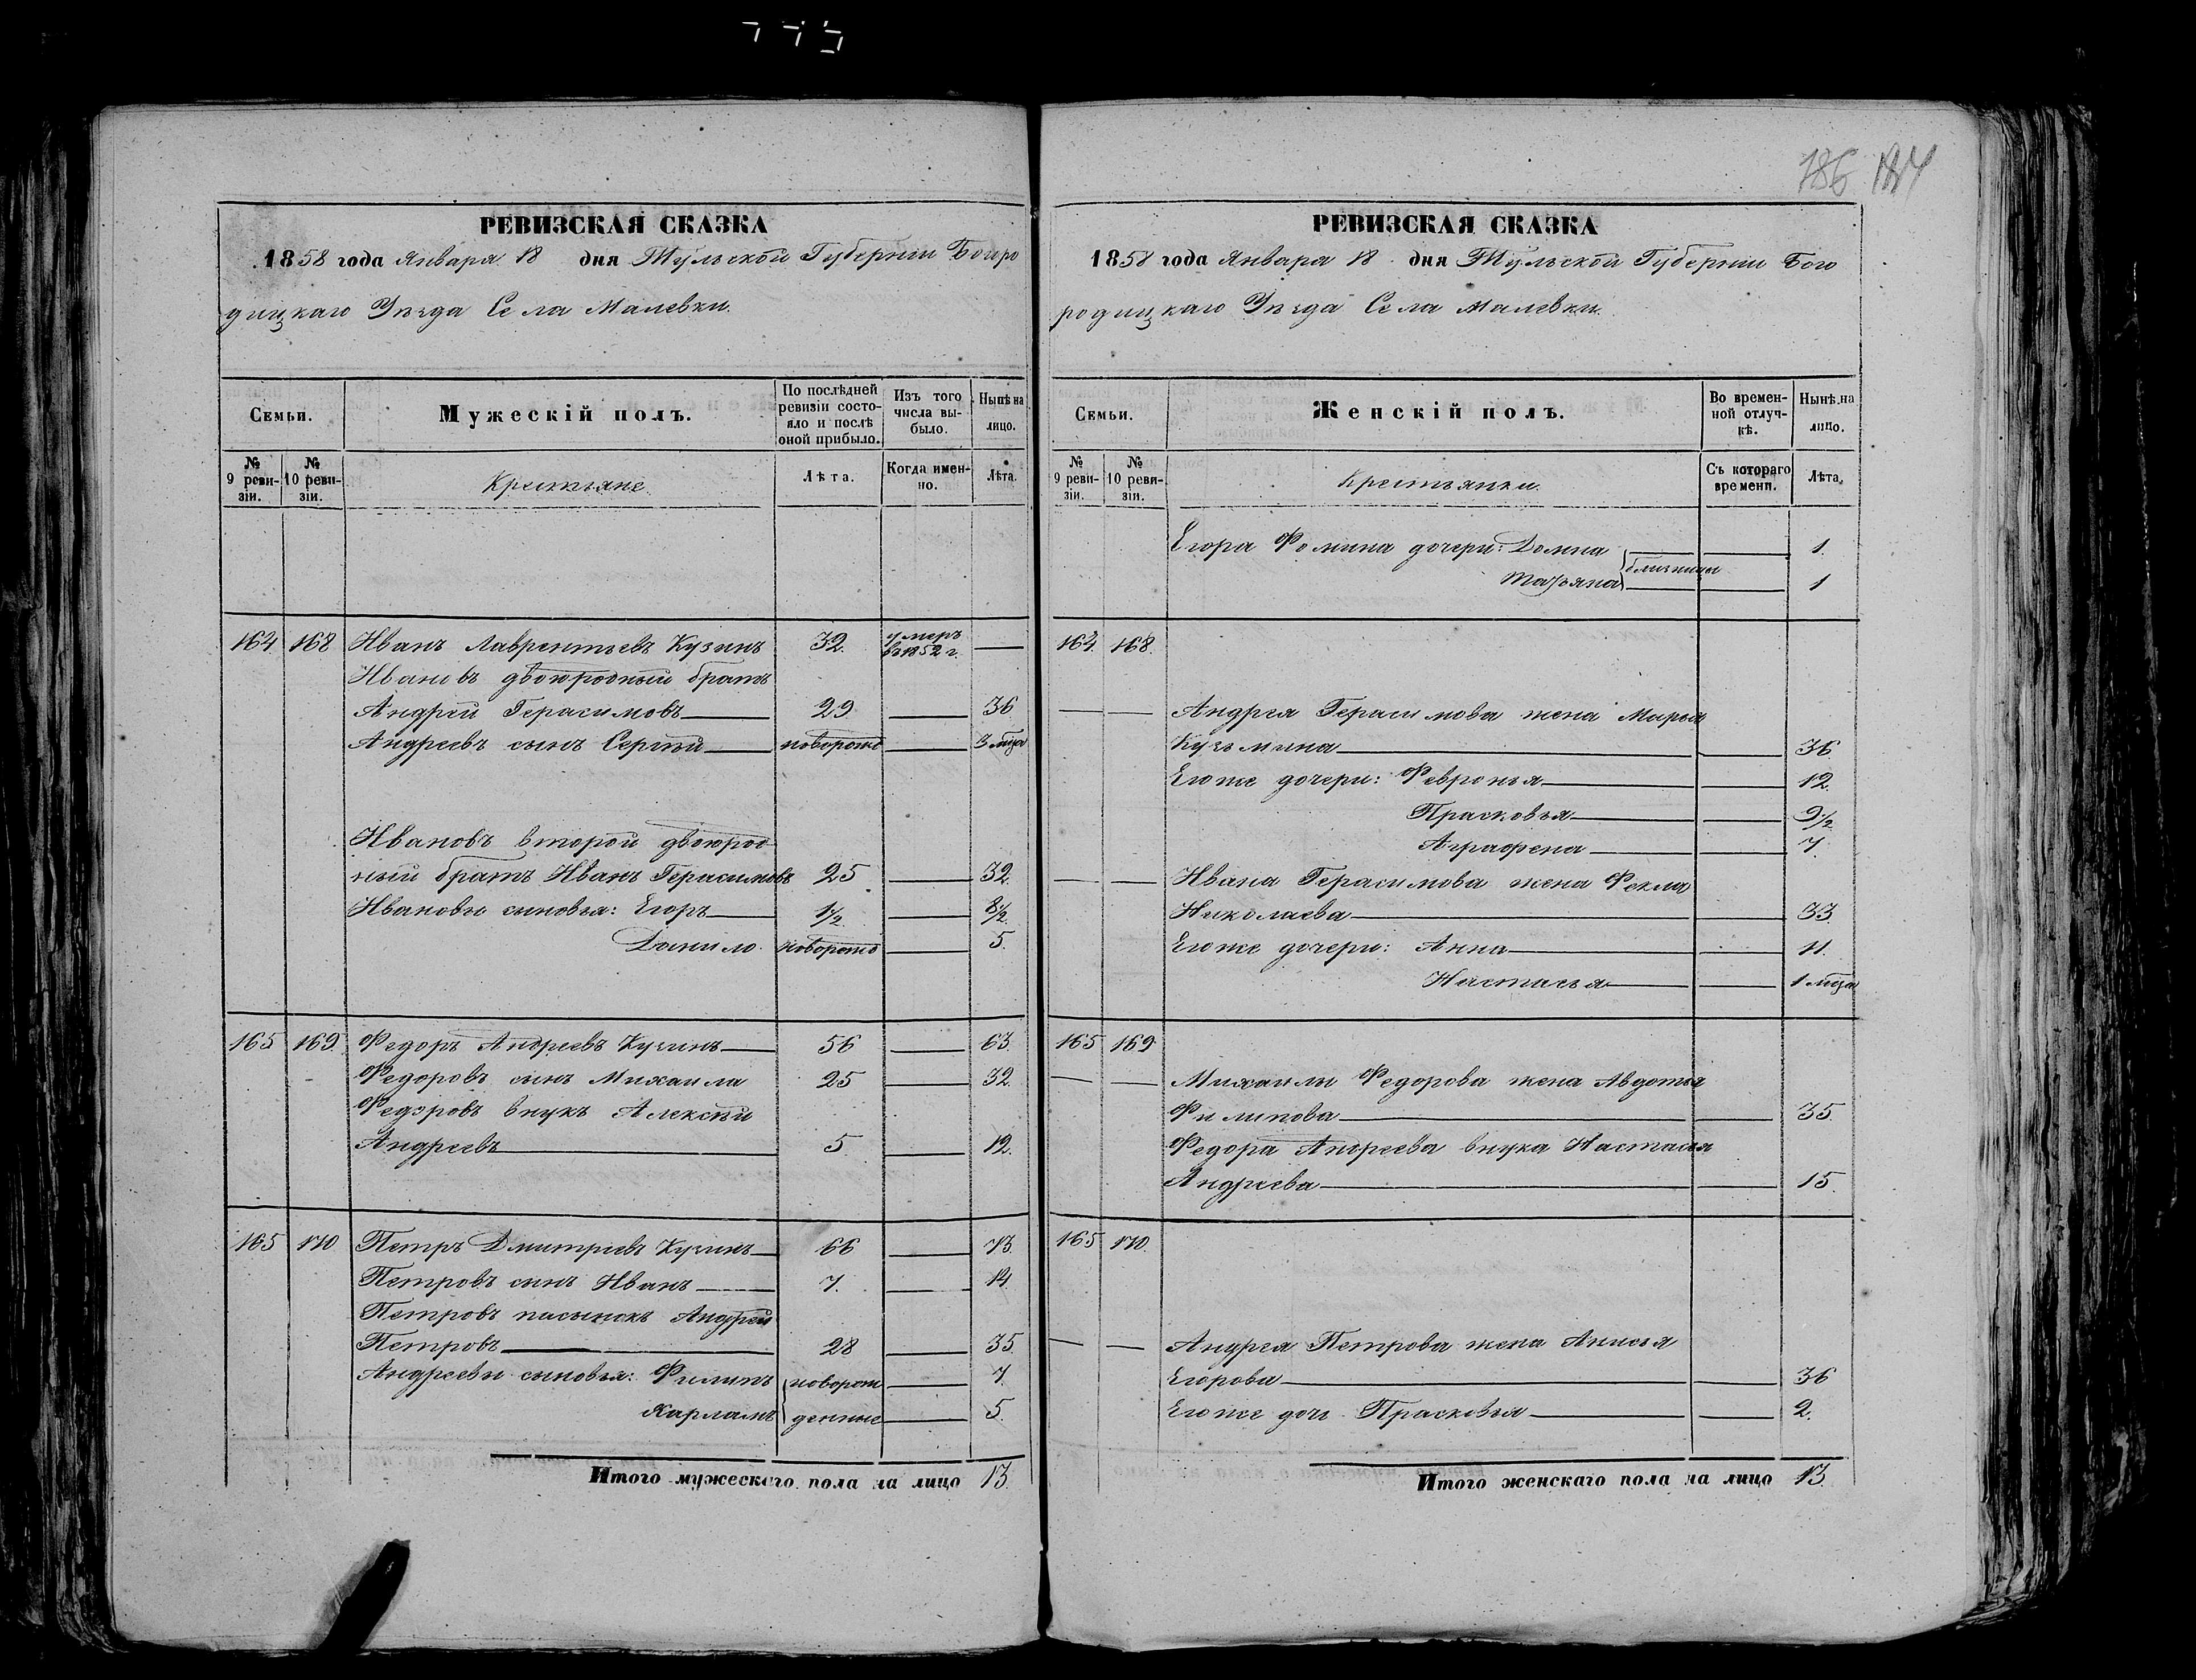 186
РЕВИЗСКАЯ СКАЗКА
1858 года Января 18 дня Тульской Губерніи Богоро
дицкаго Уѣзда Села Малевки.
Семьи.
Мужескій полъ.
По послѣдней ревизіи состояло и послѣ оной прибыло.
Изъ того числа выбыло.
Нынѣ на лицо.
№ 9 ревизіи.
№ 10 ревизіи.
Крестьяне.
Лѣта.
Когда именно.
Лѣта.
164 168 Иванъ Лаврентьевъ Кузинъ 32 умеръ въ 1852 г. —
Ивановъ двоюродный братъ
Андрей Герасимовъ — 29 — 36
Андреевъ сынъ Сергѣй — новорожд — 3 мѣся
Ивановъ второй двоюрод
ный братъ Иванъ Герасимовъ 25 — 32.
Ивановы сыновья: Егоръ — 1 1/2 — 8 1/2
Данило новорожд — 5.
165 169 Федоръ Андреевъ Кузинъ — 56 — 63.
Федоровъ сынъ Михаила 25 — 32.
Федоровъ внукъ Алексѣй
Андреевъ — 5 — 12.
165 170 Петръ Дмитріевъ Кузинъ — 66 — 73.
Петровъ сынъ Иванъ — 7. — 14.
Петровъ пасынокъ Андрей
Петровъ — 28 — 35.
Андреевы сыновья: Филипъ новорож — 7
Харламъ денные — 5.
Итого мужескаго пола на лицо 13.
РЕВИЗСКАЯ СКАЗКА
1858 года Января 18 дня Тульской Губерніи Бого
родицкаго Уѣзда Села Малевки.
Семьи.
Женскій полъ.
Во временной отлучкѣ.
Нынѣ на лицо.
№ 9 ревизіи.
№ 10 ревизіи.
Крестьянки.
Съ котораго времени.
Лѣта.
Егора Фомина дочери: Домна — — 1.
близницы
Татьяна — — 1
164 168.
— — Андрея Герасимова жена Марья
Кузьмина — — 36.
Его же дочери: Февронья — — 12.
Прасковья — — 9 1/2
Аграфена — — 7.
— — Ивана Герасимова жена Фекла
Николаева — — 33.
Его же дочери: Анна — — 11.
Настасья — — 1 мѣся
165 169
— — Михаилы Федорова жена Авдотья
Филипова — — 35.
Федора Андреева внука Настасья
Андреева — — 15.
165 170.
— — Андрея Петрова жена Анисья
Егорова — — 36
Его же дочь Прасковья — — 2.
Итого женскаго пола на лицо 13.